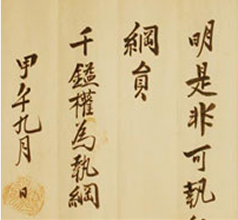 明是非可執
綱貟
千鎰權為執綱
甲午九月
日